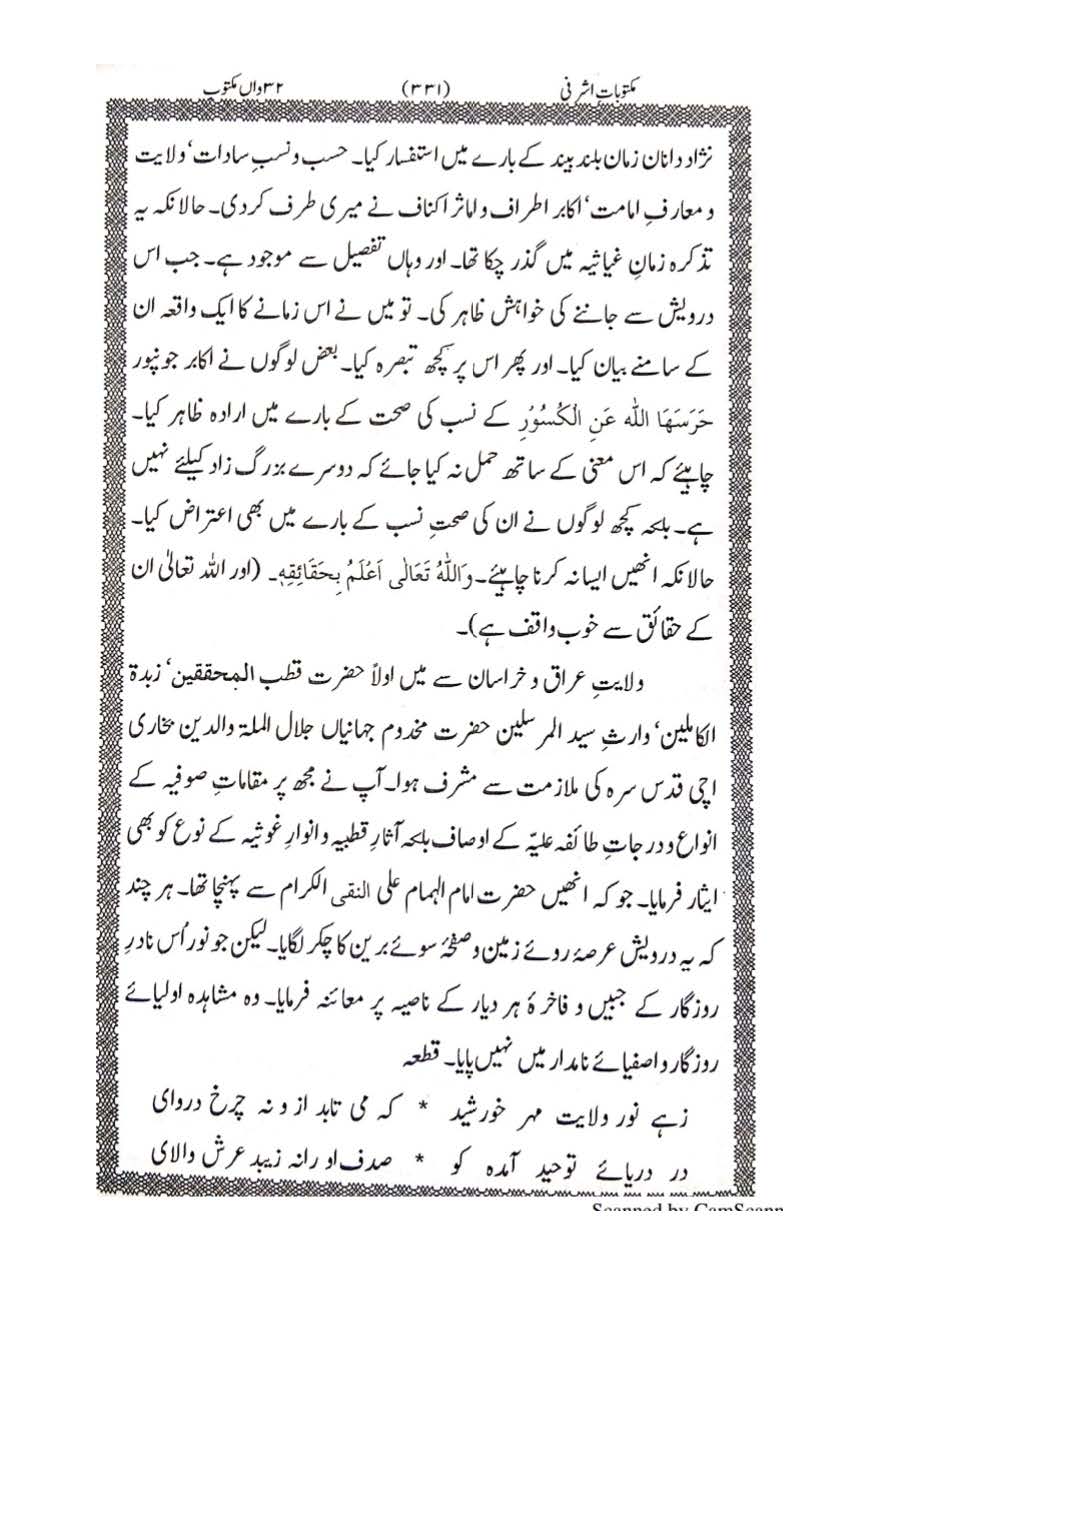 مکتوباتِ اشرفی (۳۳۱) ۳۲واں مکتوب
نژاد دانان زمان بلند بیند کے بارے میں استفسار کیا۔ حسب و نسبِ سادات، ولایت
و معارفِ امامت، اکابر اطراف و اماثر اکناف نے میری طرف کردی۔ حالانکہ یہ
تذکرہ زمانِ غیاثیہ میں گذر چکا تھا۔ اور وہاں تفصیل سے موجود ہے۔ جب اس
درویش سے جاننے کی خواہش ظاہر کی۔ تو میں نے اس زمانے کا ایک واقعہ ان
کے سامنے بیان کیا۔ اور پھر اس پر کچھ تبصرہ کیا۔ بعض لوگوں نے اکابر جونپور
حَرَسَهَا اللّٰه عَنِ الْكُسُوْرِ کے نسب کی صحت کے بارے میں ارادہ ظاہر کیا۔
چاہیئے کہ اس معنی کے ساتھ حمل نہ کیا جائے کہ دوسرے بزرگ زاد کیلئے نہیں
ہے۔ بلکہ کچھ لوگوں نے ان کی صحتِ نسب کے بارے میں بھی اعتراض کیا۔
حالانکہ انھیں ایسا نہ کرنا چاہیئے۔ وَاللّٰهُ تَعَالٰی اَعْلَمُ بِحَقَائِقِهٖ۔ (اور اللہ تعالیٰ ان
کے حقائق سے خوب واقف ہے)۔
ولایتِ عراق و خراسان سے میں اولاً حضرت قطب المحققین، زبدۃ
الکاملین، وارثِ سید المرسلین حضرت مخدوم جہانیاں جلال الملۃ والدین بخاری
اچی قدس سرہ کی ملازمت سے مشرف ہوا۔ آپ نے مجھ پر مقاماتِ صوفیہ کے
انواع و درجاتِ طائفہ علیّہ کے اوصاف بلکہ آثارِ قطبیہ و انوارِ غوثیہ کے نوع کو بھی
ایثار فرمایا۔ جو کہ انھیں حضرت امام الہمام علی النقی الکرام سے پہنچا تھا۔ ہر چند
کہ یہ درویش عرصۂ روئے زمین و صفحۂ سوئے برین کا چکر لگایا۔ لیکن جو نور اُس نادرِ
روزگار کے جبیں و فاخرۂ ہر دیار کے ناصیہ پر معائنہ فرمایا۔ وہ مشاہدہ اولیائے
روزگار و اصفیائے نامدار میں نہیں پایا۔ قطعہ
زہے نور ولایت مہر خورشید * کہ می تابد از و نہ چرخ دروای
در دریائے توحید آمدہ کو * صدف او را نہ زیبد عرش والای
Scanned by CamScann